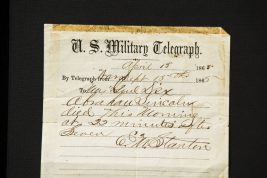 U. S. Military Telegraph.
April 15 186
By Telegraph from 15 186
To
Abraham Lincoln
died this morning
at 22 minutes after
Seven
E M Stanton